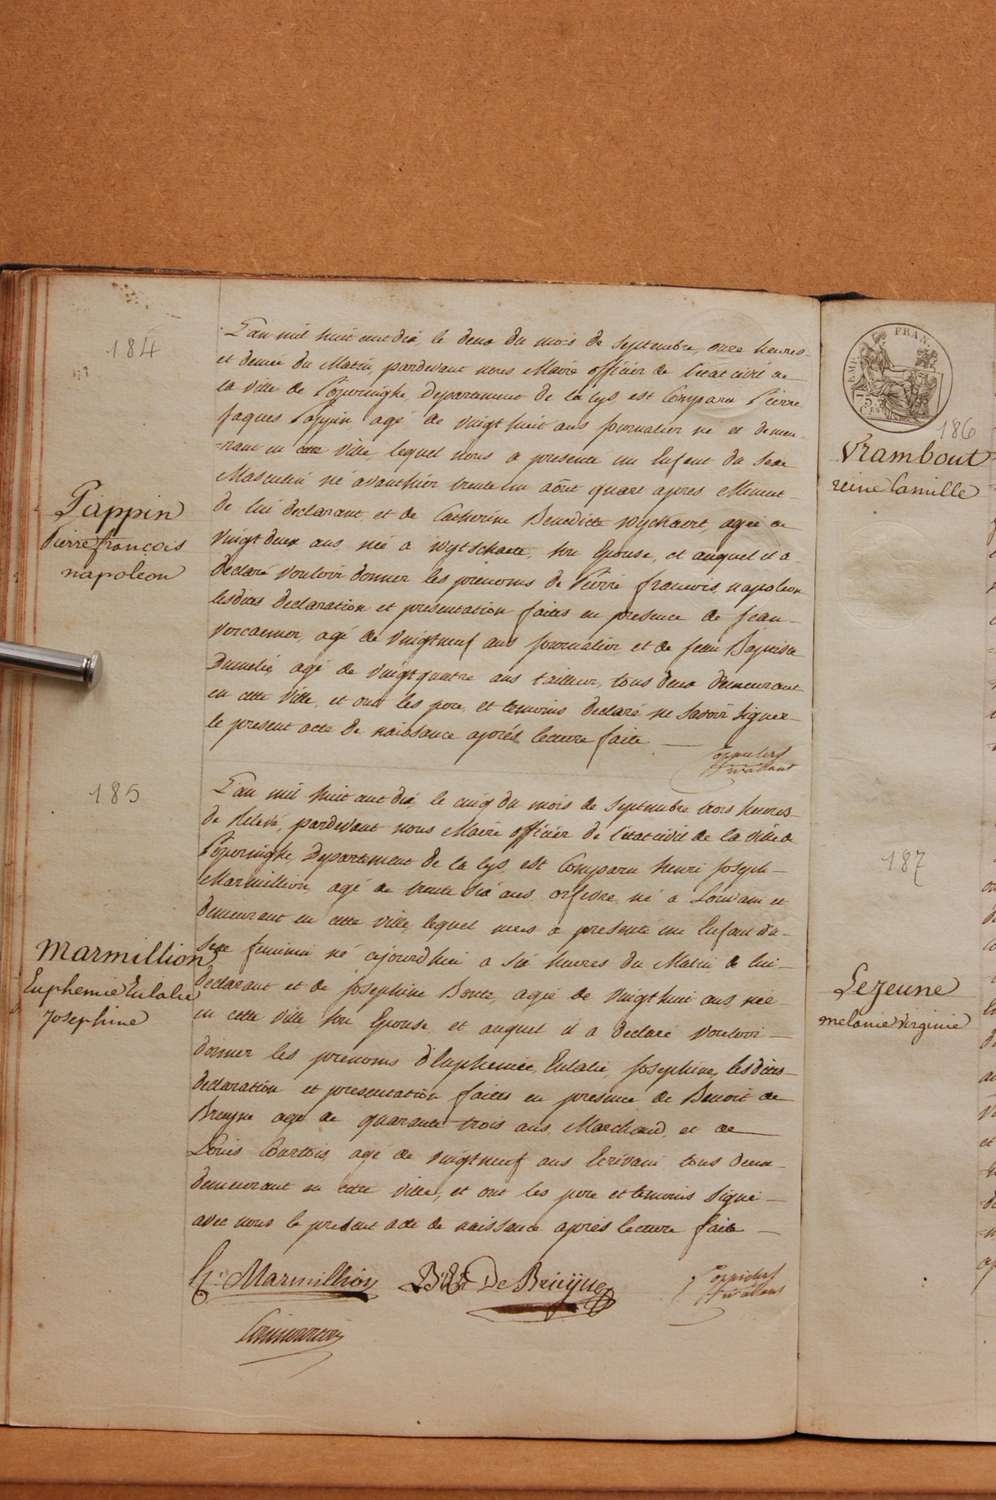 184
L'an mil huit cent dix le deux du mois de Septembre, onze heures
et demie du Matin, pardevant nous Maire officier de l'état civil de
la ville de Poperinghe, Departement de la Lys est Comparu Pierre
Jaques Pappin agé de vingt huit ans journalier né et demeu-
rant en cette ville, lequel nous a presenté un Enfant du Sexe
Masculin né avanthier trente un août quart apres
de lui declarant et de Catherine Benedicte Wyckaert, agée de
vingt deux ans, née à Wytschaete, son Epouse, et auquel il a
declaré vouloir donner les prenoms de Pierre françois, napoleon
lesdites declaration et presentation faites en presence de jean
agé de vingtneuf ans journalier et de jean Baptiste
agé de vingtquatre ans tailleur, tous deux demeurant
en cette ville, et ont les pere, et temoins declaré ne Savoir Signer
le present acte de naissance après lecture faite
Pappin
Pierre françois
napoleon
185
L'an mil huit cent dix le cinq du mois de Septembre trois heures
de Relevé, pardevant nous Maire officier de l'état civil de la ville de
Poperinghe Departement de la Lys, est Comparu henri joseph
Marmillion agé de trente six ans, orfevre, né à Louvain et
demeurant en cette ville, lequel nous a presenté un Enfant du
Sexe feminin né ajourdhui a six heures du Matin de lui
declarant et de josephine agée de vingthuit ans née
en cette ville son Epouse, et auquel il a declaré vouloir
donner les prenoms d'Euphemie, Eulalie, josephine, lesdites
declaration et presentation faites en presence de Benoit de
Bruyne agé de quarante trois ans, Marchand, et de
Louis Courtois, agé de vingtneuf ans Ecrivain tous deux
demeurant en cette ville, et ont les pere et temoins Signé
avec nous le present acte de naissance après lecture faite
Marmillion
Euphemie Eulalie
Josephine
Marmillion
De Bruyne
186
Frambout
reine Camille
187
Lejeune
melanie Virginie